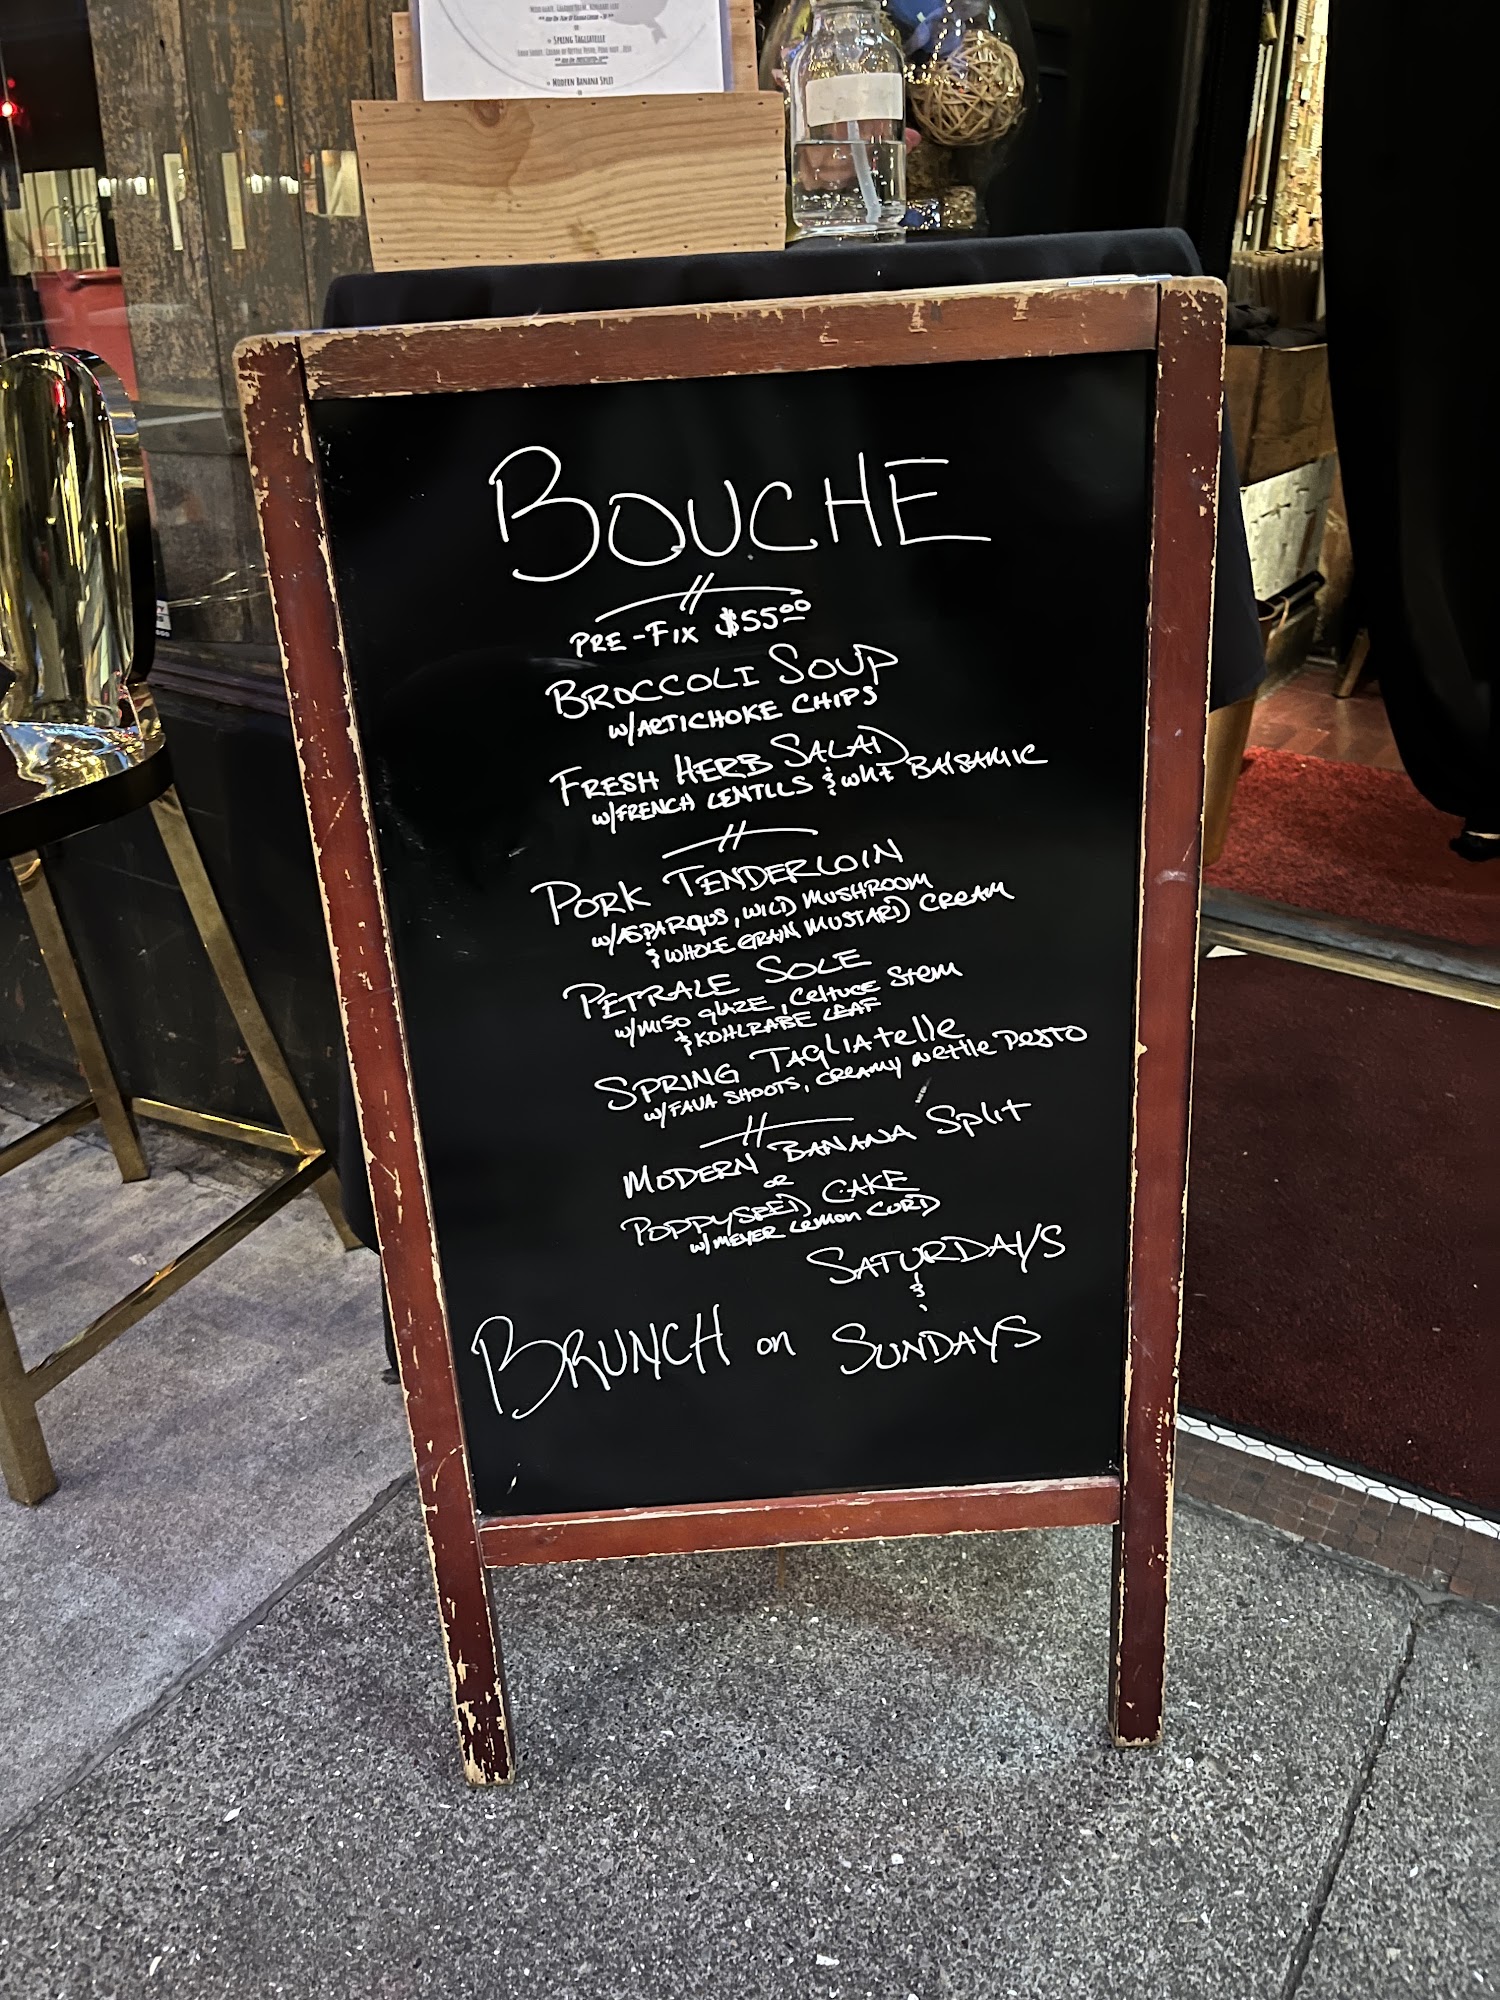 » Spring Tagliatelle
» Modern Banana Split
BOUCHE
PRE-FIX $55.00
BROCCOLI SOUP
w/ARTICHOKE CHIPS
FRESH HERB SALAD
w/FRENCH LENTILS & wht BALSAMIC
PORK TENDERLOIN
w/ASPARAGUS, WILD MUSHROOM
& WHOLE GRAIN MUSTARD CREAM
PETRALE SOLE
w/MISO glAZE, CeltUCE Stem
& KOHLRABE LEAF
SPRING TAGLIATelle
w/FAVA SHOOTS, CREAMY NEttle PESTO
MODERN BANANA Split
OR
POPPYSEED CAKE
w/MEYER LEMON CURD
SATURDAYS
&
BRUNCH on SUNDAYS